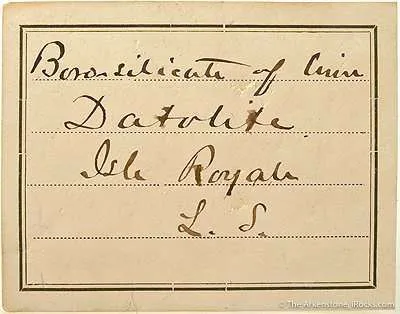 Boro-silicate of Lime
Datolite
Isle Royale
L. S.
© The Arkenstone, iRocks.com